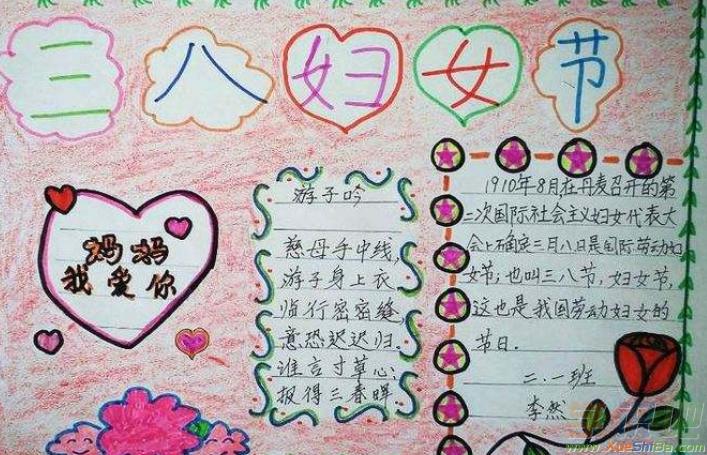 三八妇女节
妈妈
我爱你
游子吟
慈母手中线,
游子身上衣
临行密密缝,
意恐迟迟归.
谁言寸草心,
报得三春晖.
1910年8月在丹麦召开的第
二次国际社会主义妇女代表大
会上确定三月八日是国际劳动妇
女节;也叫三八节,妇女节,
这也是我国劳动妇女的
节日.
二.一班
李然
www.XueShiBa.com